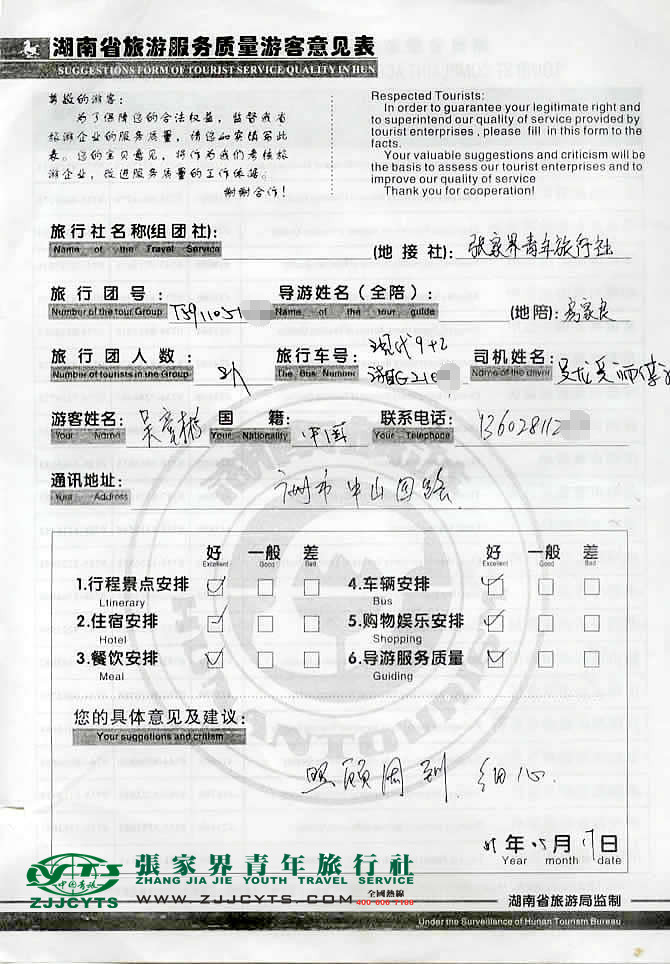 湖南省旅游服务质量游客意见表
SUGGESTIONS FORM OF TOURIST SERVICE QUALITY IN HUN
尊敬的游客:
为了保障您的合法权益，监督我省
旅游企业的服务质量，请您如实填写此
表。您的宝贝意见，将作为我们考核旅
游企业，改进服务质量的工作依据。
谢谢合作!
Respected Tourists:
In order to guarantee your legitimate right and
to superintend our quality of service provided by
tourist enterprises , please fill in this form to the
facts.
Your valuable suggestions and criticism will be
the basis to assess our tourist enterprises and to
improve our quality of service
Thank you for cooperation!
旅行社名称(组团社):
Name of the Travel Service
(地接社): 张家界青年旅行社
旅行团号:
Number of the tour Group
导游姓名(全陪):
Name of the tour guide
(地陪):
旅行团人数:
Number of tourists in the Group
旅行车号: 现代9+2
The Bus Number
司机姓名:
Name of the driver
游客姓名:
Your Name
国籍: 中国
Your Nationality
联系电话: 136028112
Your Telephone
通讯地址: 广州市中山四路
Your Address
好 一般 差 好 一般 差
Excellent Good Bad Excellent Good Bad
1.行程景点安排 4.车辆安排
Ltinerary Bus
2.住宿安排 5.购物娱乐安排
Hotel Shopping
3.餐饮安排 6.导游服务质量
Meal Guiding
您的具体意见及建议:
Your suggetions and critism
照顾周到、细心
年 05 月 17 日
Year month date
中国青旅
ZJJCYTS
張家界青年旅行社
ZHANG JIA JIE YOUTH TRAVEL SERVICE
WWW.ZJJCYTS.COM
全國熱線
湖南省旅游局监制
Under the Surveillance of Hunan Tourism Bureau